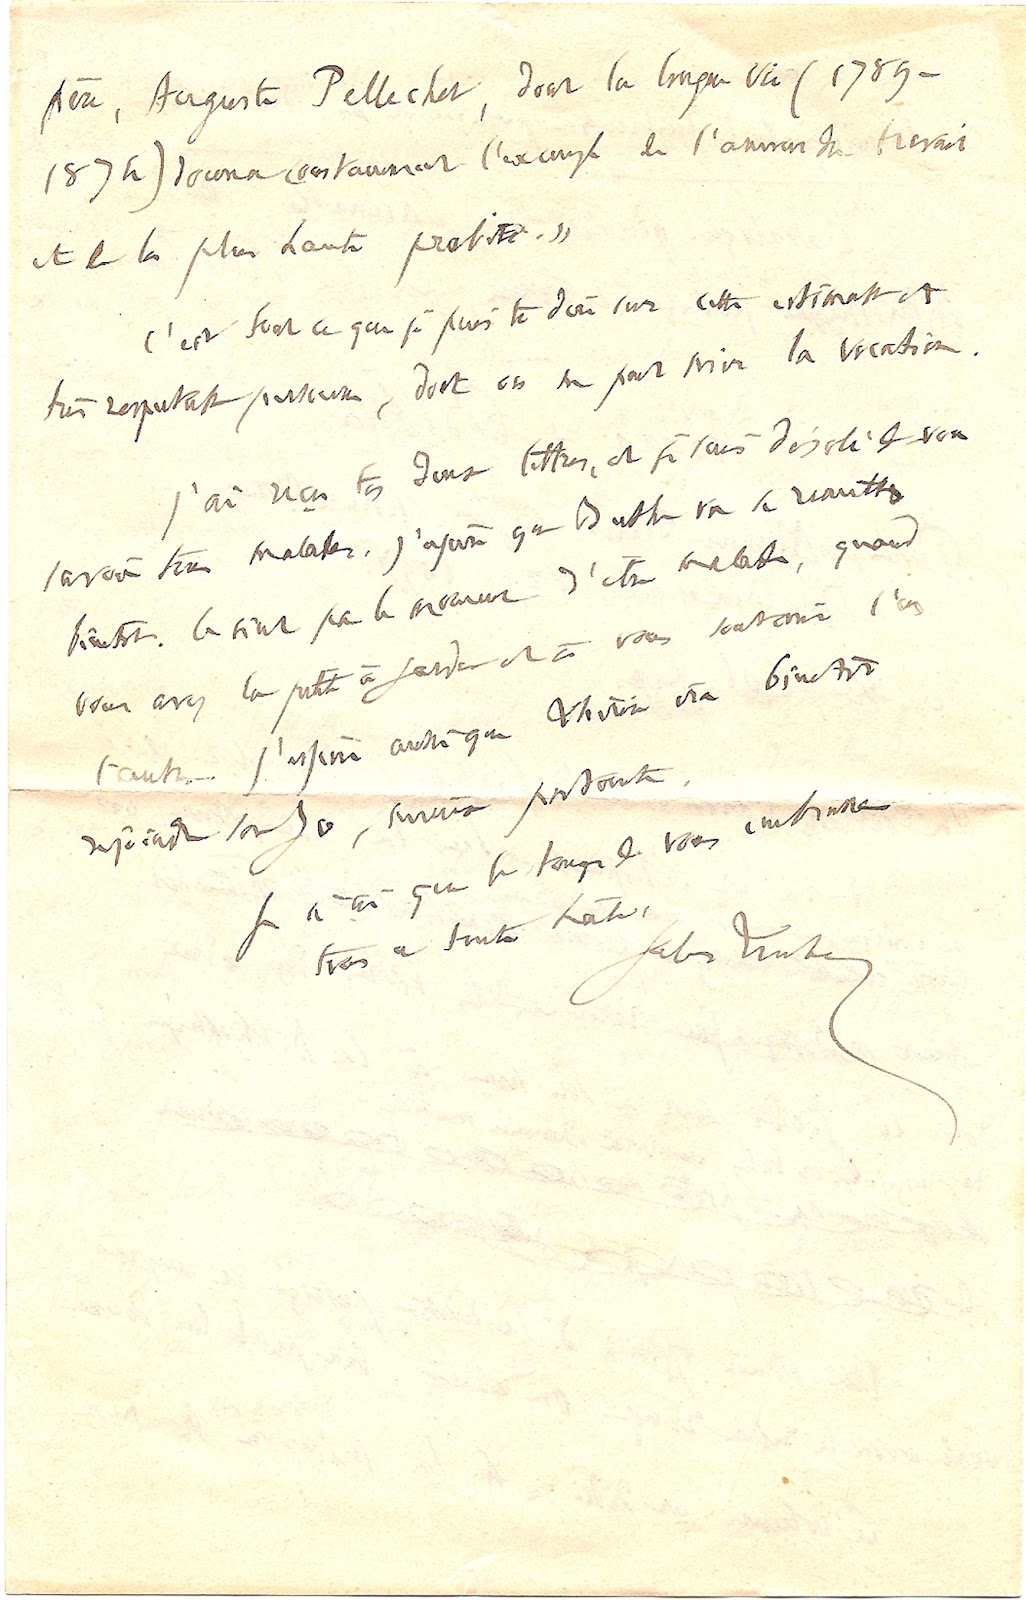 père, Auguste Pellechet, dont la longue vie (1789-
1874) donna constamment l'exemple de l'amour du travail
et de la plus haute probité. »
C'est tout ce que je puis te dire sur cette estimable et
très respectable personne, dont on ne peut nier la vocation.
J'ai reçu tes deux lettres, et je suis désolé de vous
savoir tous malades. J'espère que va se remettre
bientôt. Ce n'est pas le moment d'être malade, quand
vous avez la petite à garder et à vous soutenir l'un
l'autre. J'espère aussi que ira bientôt
rejoindre son Jo,
Je n'ai que le temps de vous embrasser
tous en toute hâte.
Jules